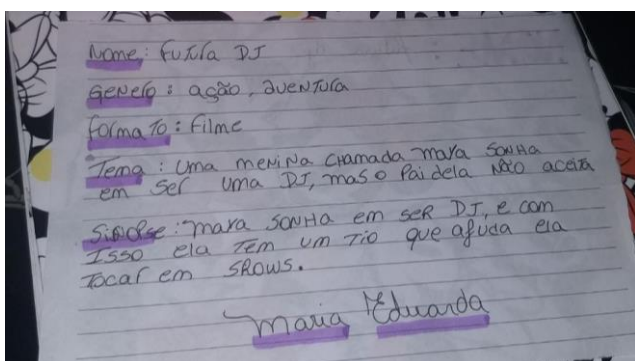 Nome: Futura DJ
Genero: ação, aventura
Formato: Filme
Tema: Uma menina chamada mara sonha
em ser uma DJ, mas o Pai dela não aceita
Sinopse: mara sonha em ser DJ, e com
Isso ela tem um tio que ajuda ela
Tocar em shows.
Maria Eduarda